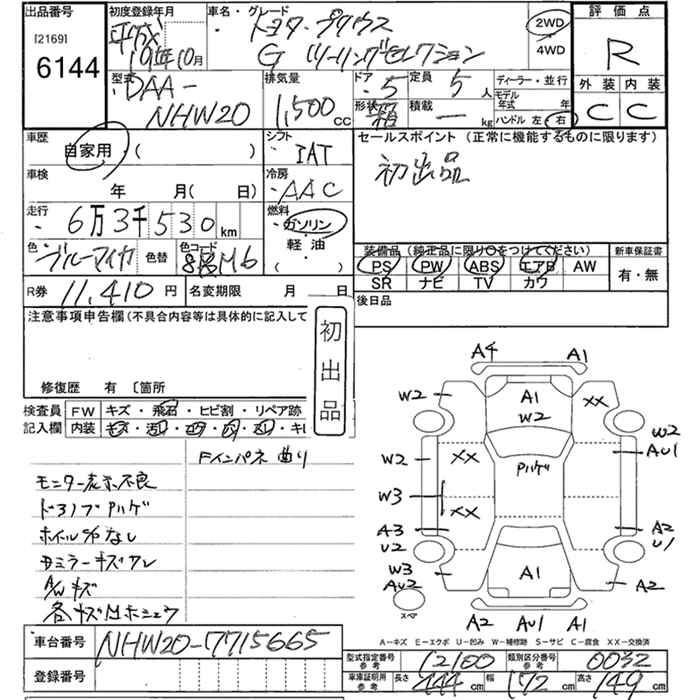 出品番号
[2169]
6144
初度登録年月
平成
19年10月
車名・グレード
トヨタ プリウス
G ツーリングセレクション
2WD
4WD
評価点
R
外装 内装
C C
型式
DAA-
NHW20
排気量
1,500 cc
ドア 5
定員 5 人
形状 箱
積載 — kg
ディーラー・並行
モデル年式 年
ハンドル 左 右
車歴
自家用・( )
車検
年 月( 日)
走行
6万3千530km
色
ブルーマイカ
色替
色コード
8S M6
シフト
IAT
冷房
AAC
燃料
ガソリン
軽油
( )
セールスポイント(正常に機能するものに限ります)
初出品
装備品(純正品に限り○をつけてください)
新車保証書
PS PW ABS エアB AW
SR ナビ TV カワ
有・無
R券 11,410円
名変期限 月 日
後日品
注意事項申告欄(不具合内容等は具体的に記入して
初出品
修復歴 有〔箇所
検査員 FW キズ・飛石・ヒビ割・リペア跡
記入欄 内装
Fインパネ曲り
モニター表示不良
ホイル
キズ
A4 A1
W2 A1 XX
W2
W2
AU1
W2 XX
W3
XX
A3
U2
A2
U1
W3
AU2
A1
A2
スペア
A2 AU1 A1
A-キズ E-エクボ U-凹み W-補修跡 S-サビ C-腐食 XX-交換済
車台番号 NHW20-7715665
登録番号
型式指定番号 参考 12100
類別区分番号 参考 0032
車庫証明用 参考 長さ 444 cm 幅 172 cm 高さ 149 cm